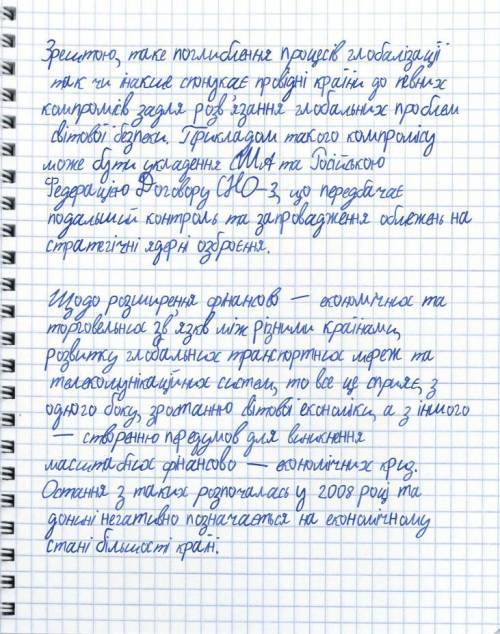 Зрештою, таке поглиблення процесів глобалізації
так чи інакше спонукає провідні країни до певних
компромісів задля розв'язання глобальних проблем
світової безпеки. Прикладом такого компромісу
може бути укладення США та Російською
Федерацією Договору СНО-3, що передбачає
подальший контроль та запровадження обмежень на
стратегічні ядерні озброєння.
Щодо розширення фінансово — економічних та
торговельних зв'язків між різними країнами,
розвитку глобальних транспортних мереж та
телекомунікаційних систем, то все це сприяє, з
одного боку, зростанню світової економіки, а з іншого
— створенню передумов для виникнення
масштабних фінансово — економічних криз.
Остання з таких розпочалась у 2008 році та
донині негативно позначається на економічному
стані більшості країн.